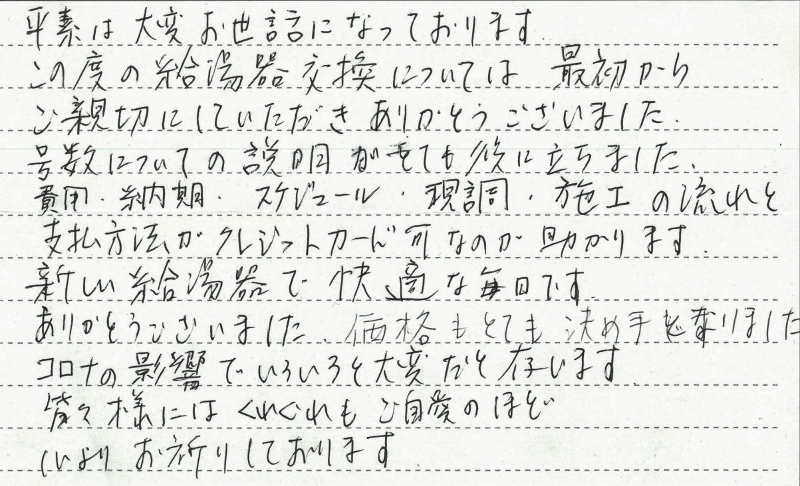 平素は大変お世話になっております.
この度の給湯器交換については 最初から
ご親切にしていただき ありがとうございました.
号数についての説明がとても役に立ちました.
費用・納期・スケジュール・現調・施工の流れと
支払方法がクレジットカード可なのが助かります.
新しい給湯器で快適な毎日です.
ありがとうございました. 価格もとても決め手となりました
コロナの影響でいろいろと大変だと存います.
皆々様にはくれぐれもご自愛のほど
心よりお祈りしております.